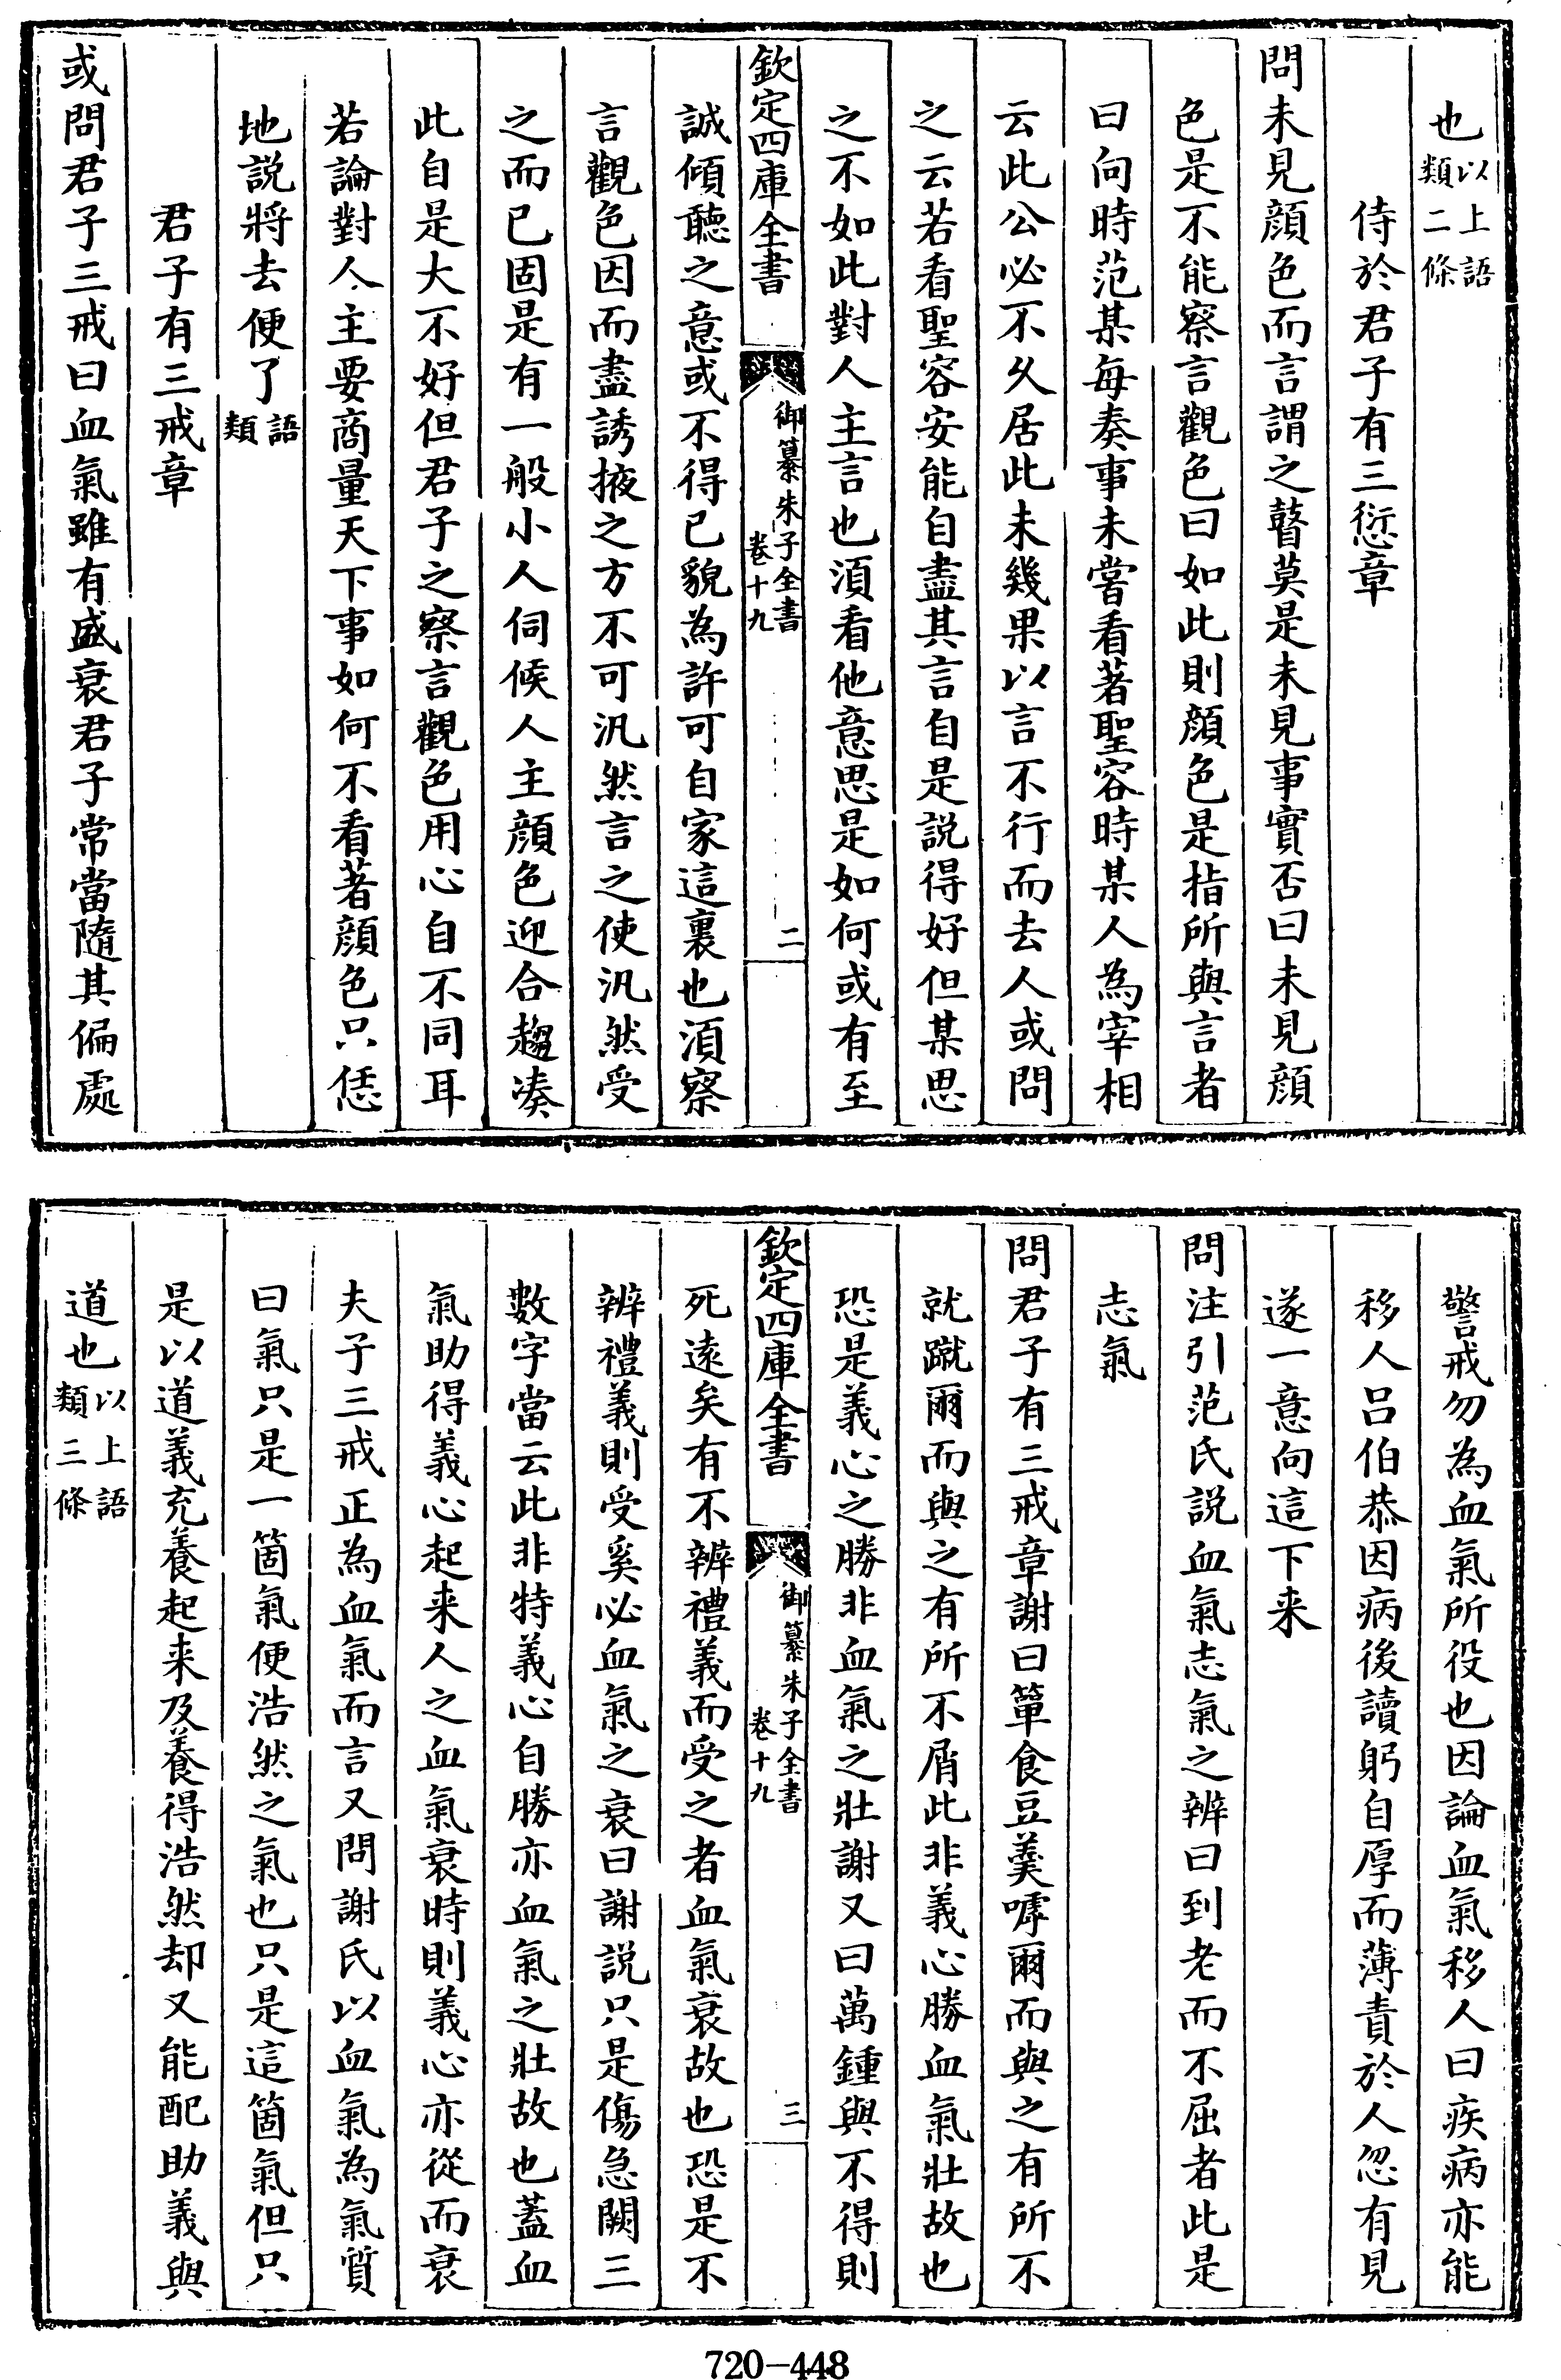 也以上語類二條
侍於君子有三愆章
問未見顔色而言謂之瞽莫是未見事實否曰未見顔
色是不能察言觀色曰如此則顔色是指所與言者
曰向時范某每奏事未嘗看著聖容時某人為宰相
云此公必不久居此未幾果以言不行而去人或問
之云若看聖容安能自盡其言自是説得好但某思
之不如此對人主言也湏看他意思是如何或有至
欽定四庫全書
御纂朱子全書
卷十九
二
誠傾聽之意或不得已貌為許可自家這裏也湏察
言觀色因而盡誘掖之方不可汎然言之使汎然受
之而已固是有一般小人伺候人主顔色迎合趨湊
此自是大不好但君子之察言觀色用心自不同耳
若論對人主要商量天下事如何不看著顔色只恁
地説將去便了語類
君子有三戒章
或問君子三戒曰血氣雖有盛衰君子常當隨其偏處
警戒勿為血氣所役也因論血氣移人曰疾病亦能
移人吕伯恭因病後讀躬自厚而薄責於人忽有見
遂一意向這下来
問注引范氏説血氣志氣之辨曰到老而不屈者此是
志氣
問君子有三戒章謝曰簞食豆羮嘑爾而與之有所不
就蹴爾而與之有所不屑此非義心勝血氣壯故也
恐是義心之勝非血氣之壯謝又曰萬鍾與不得則
欽定四庫全書
御纂朱子全書
卷十九
三
死遠矣有不辨禮義而受之者血氣衰故也恐是不
辨禮義則受奚必血氣之衰曰謝説只是傷急闕三
數字當云此非特義心自勝亦血氣之壯故也蓋血
氣助得義心起来人之血氣衰時則義心亦從而衰
夫子三戒正為血氣而言又問謝氏以血氣為氣質
曰氣只是一箇氣便浩然之氣也只是這箇氣但只
是以道義充養起来及養得浩然却又能配助義與
道也以上語類三條
720-448